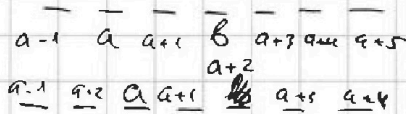 a-1 a a+1 в a+3 a+4 a+5
a+2
a-1 a+2 a a+1 a+3 a+4